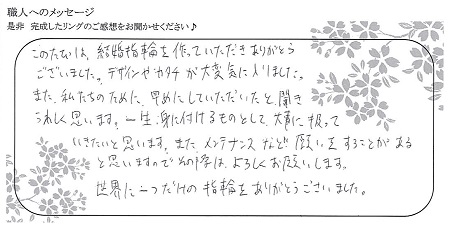 職人へのメッセージ
是非 完成したリングのご感想をお聞かせください♪
このたびは、結婚指輪を作っていただきありがとう
ございました。デザインやカタチが大変気に入りました。
また、私たちのために、早めにしていただいたと聞き
うれしく思います。一生、身に付けるものとして、大事に扱って
いきたいと思います。また、メンテナンスなど願いをすることがある
と思いますのでその際は、よろしくお願いします。
世界に一つだけの指輪をありがとうございました。